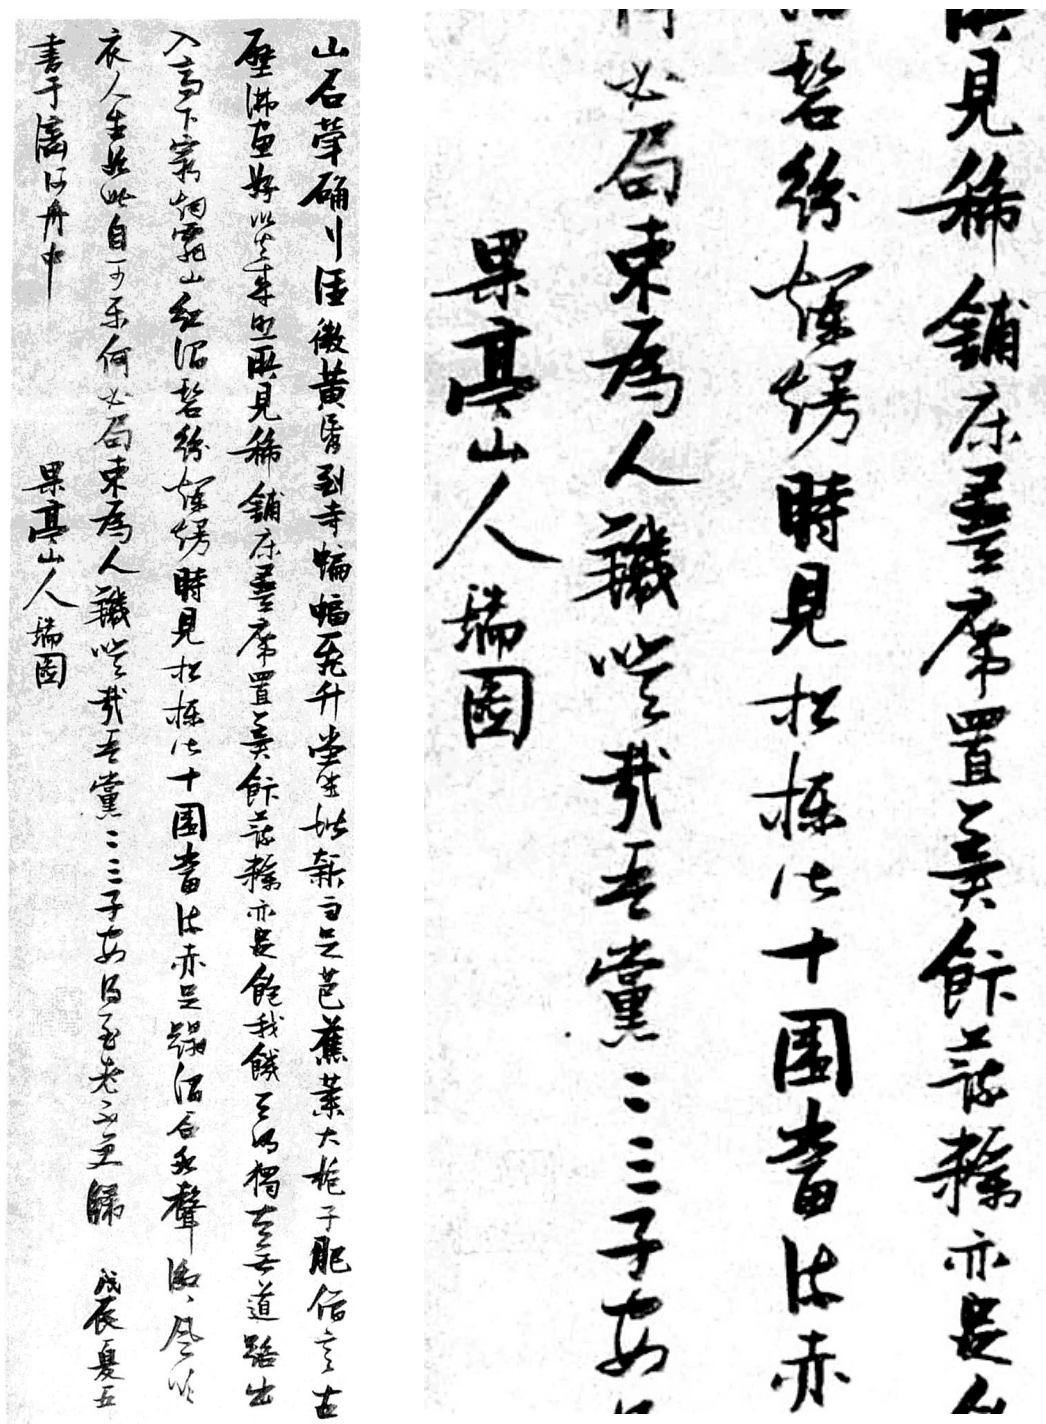 山石犖确行徑微黃昏到寺蝙蝠飛升堂坐階新雨足芭蕉葉大梔子肥僧言古
壁佛畫好以火來照所見稀鋪床拂席置羹飯疏糲亦足飽我饑天明獨去無道路出
入高下窮煙霏山紅澗碧紛爛熳時見松櫪皆十圍當流赤足蹋澗石水聲激〻風吹
衣人生如此自可樂何必局束為人鞿嗟哉吾黨二三子安得至老不更歸 戊辰夏五
書于河舟中 果亭山人瑞圖
見稀鋪床拂席置羹飯疏糲亦足
碧紛爛熳時見松櫪皆十圍當流赤
何必局束為人鞿嗟哉吾黨二三子安
果亭山人瑞圖